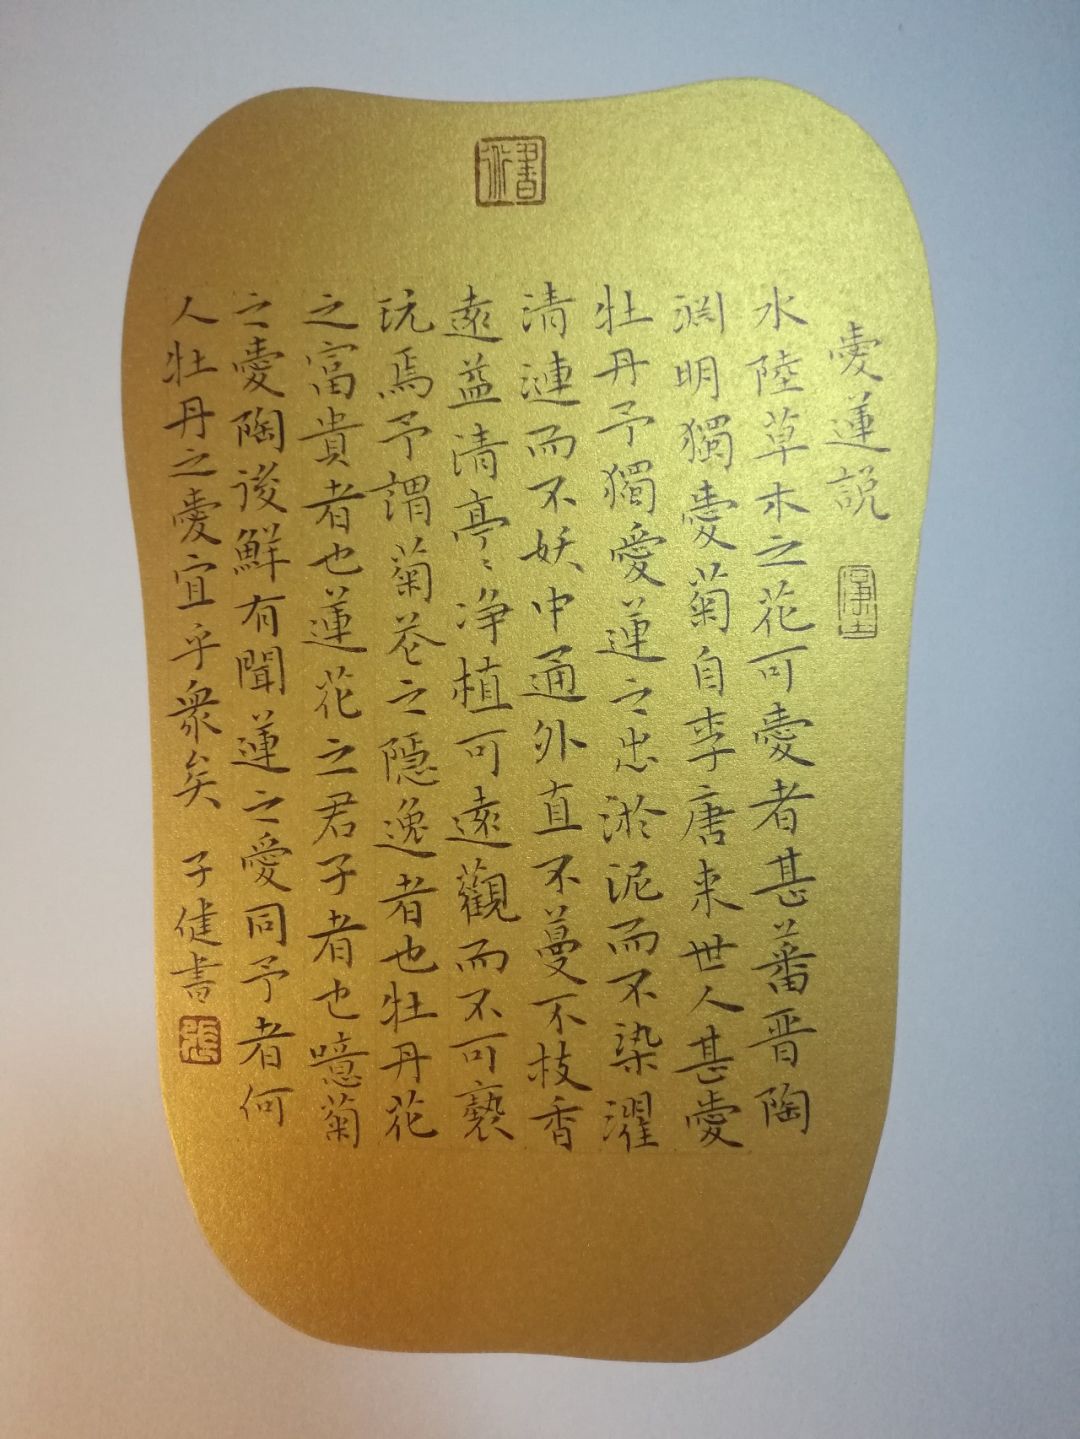 愛蓮說
淨土
水陸草木之花可愛者甚蕃晋陶
渊明獨愛菊自李唐来世人甚愛
牡丹予獨愛蓮之出淤泥而不染濯
清漣而不妖中通外直不蔓不枝香
遠益清亭〻净植可遠觀而不可褻
玩焉予謂菊花之隱逸者也牡丹花
之富貴者也蓮花之君子者也噫菊
之愛陶後鮮有聞蓮之愛同予者何
人牡丹之愛宜乎衆矣 子健書
張